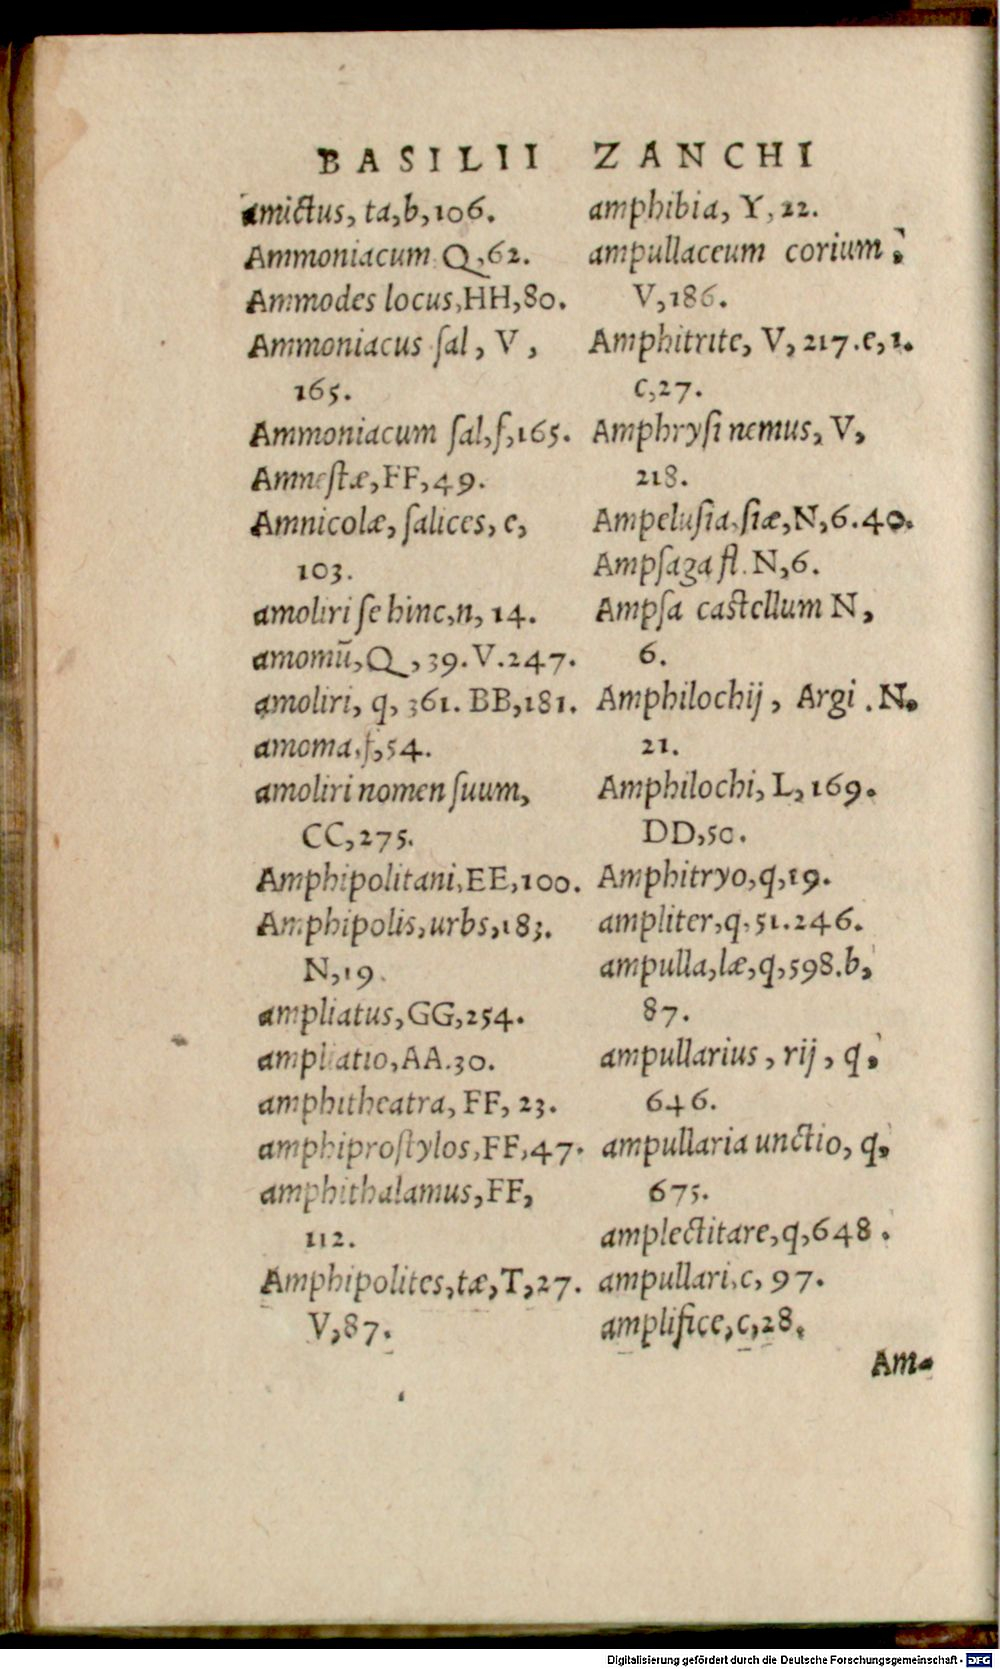 BASILII ZANCHI
amictus, ta,b,106.
Ammoniacum Q,62.
Ammodes locus,HH,80.
Ammoniacus ſal, V,
165.
Ammoniacum ſal,ſ,165.
Amneſtæ,FF,49.
Amnicolæ, ſalices, e,
103.
amoliri ſe hinc,n, 14.
amomū,Q,39.V.247.
amoliri, q, 361. BB,181.
amoma,ſ,54.
amoliri nomen ſuum,
CC,275.
Amphipolitani,EE,100.
Amphipolis,urbs,183.
N,19.
ampliatus,GG,254.
ampliatio,AA.30.
amphitheatra, FF, 23.
amphiproſtylos,FF,47.
amphithalamus,FF,
112.
Amphipolites,tæ,T,27.
V,87.
amphibia, Y, 22.
ampullaceum corium,
V,186.
Amphitrite, V, 217.e,1.
c,27.
Amphryſi nemus, V,
218.
Ampeluſia,ſiæ,N,6.40.
Ampſaga fl. N,6.
Ampſa caſtellum N,
6.
Amphilochij, Argi. N.
21.
Amphilochi, L, 169.
DD,50.
Amphitryo,q,19.
ampliter,q,51.246.
ampulla,læ,q,598.b,
87.
ampullarius, rij, q,
646.
ampullaria unctio, q,
675.
amplectitare,q,648.
ampullari,c, 97.
amplifice,c,28.
Am-
Digitalisierung gefördert durch die Deutsche Forschungsgemeinschaft - DFG